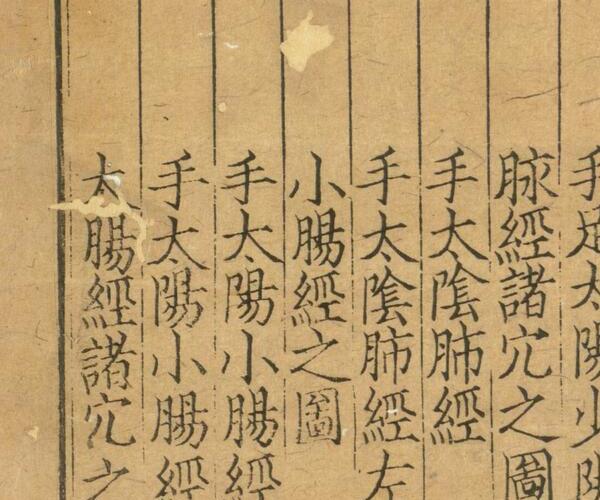 手足太陽少陽
脉經諸穴之圖
手太陰肺經
手太陰肺經左
小腸經之圖
手太陽小腸經
手太陽小腸經
太腸經諸穴之